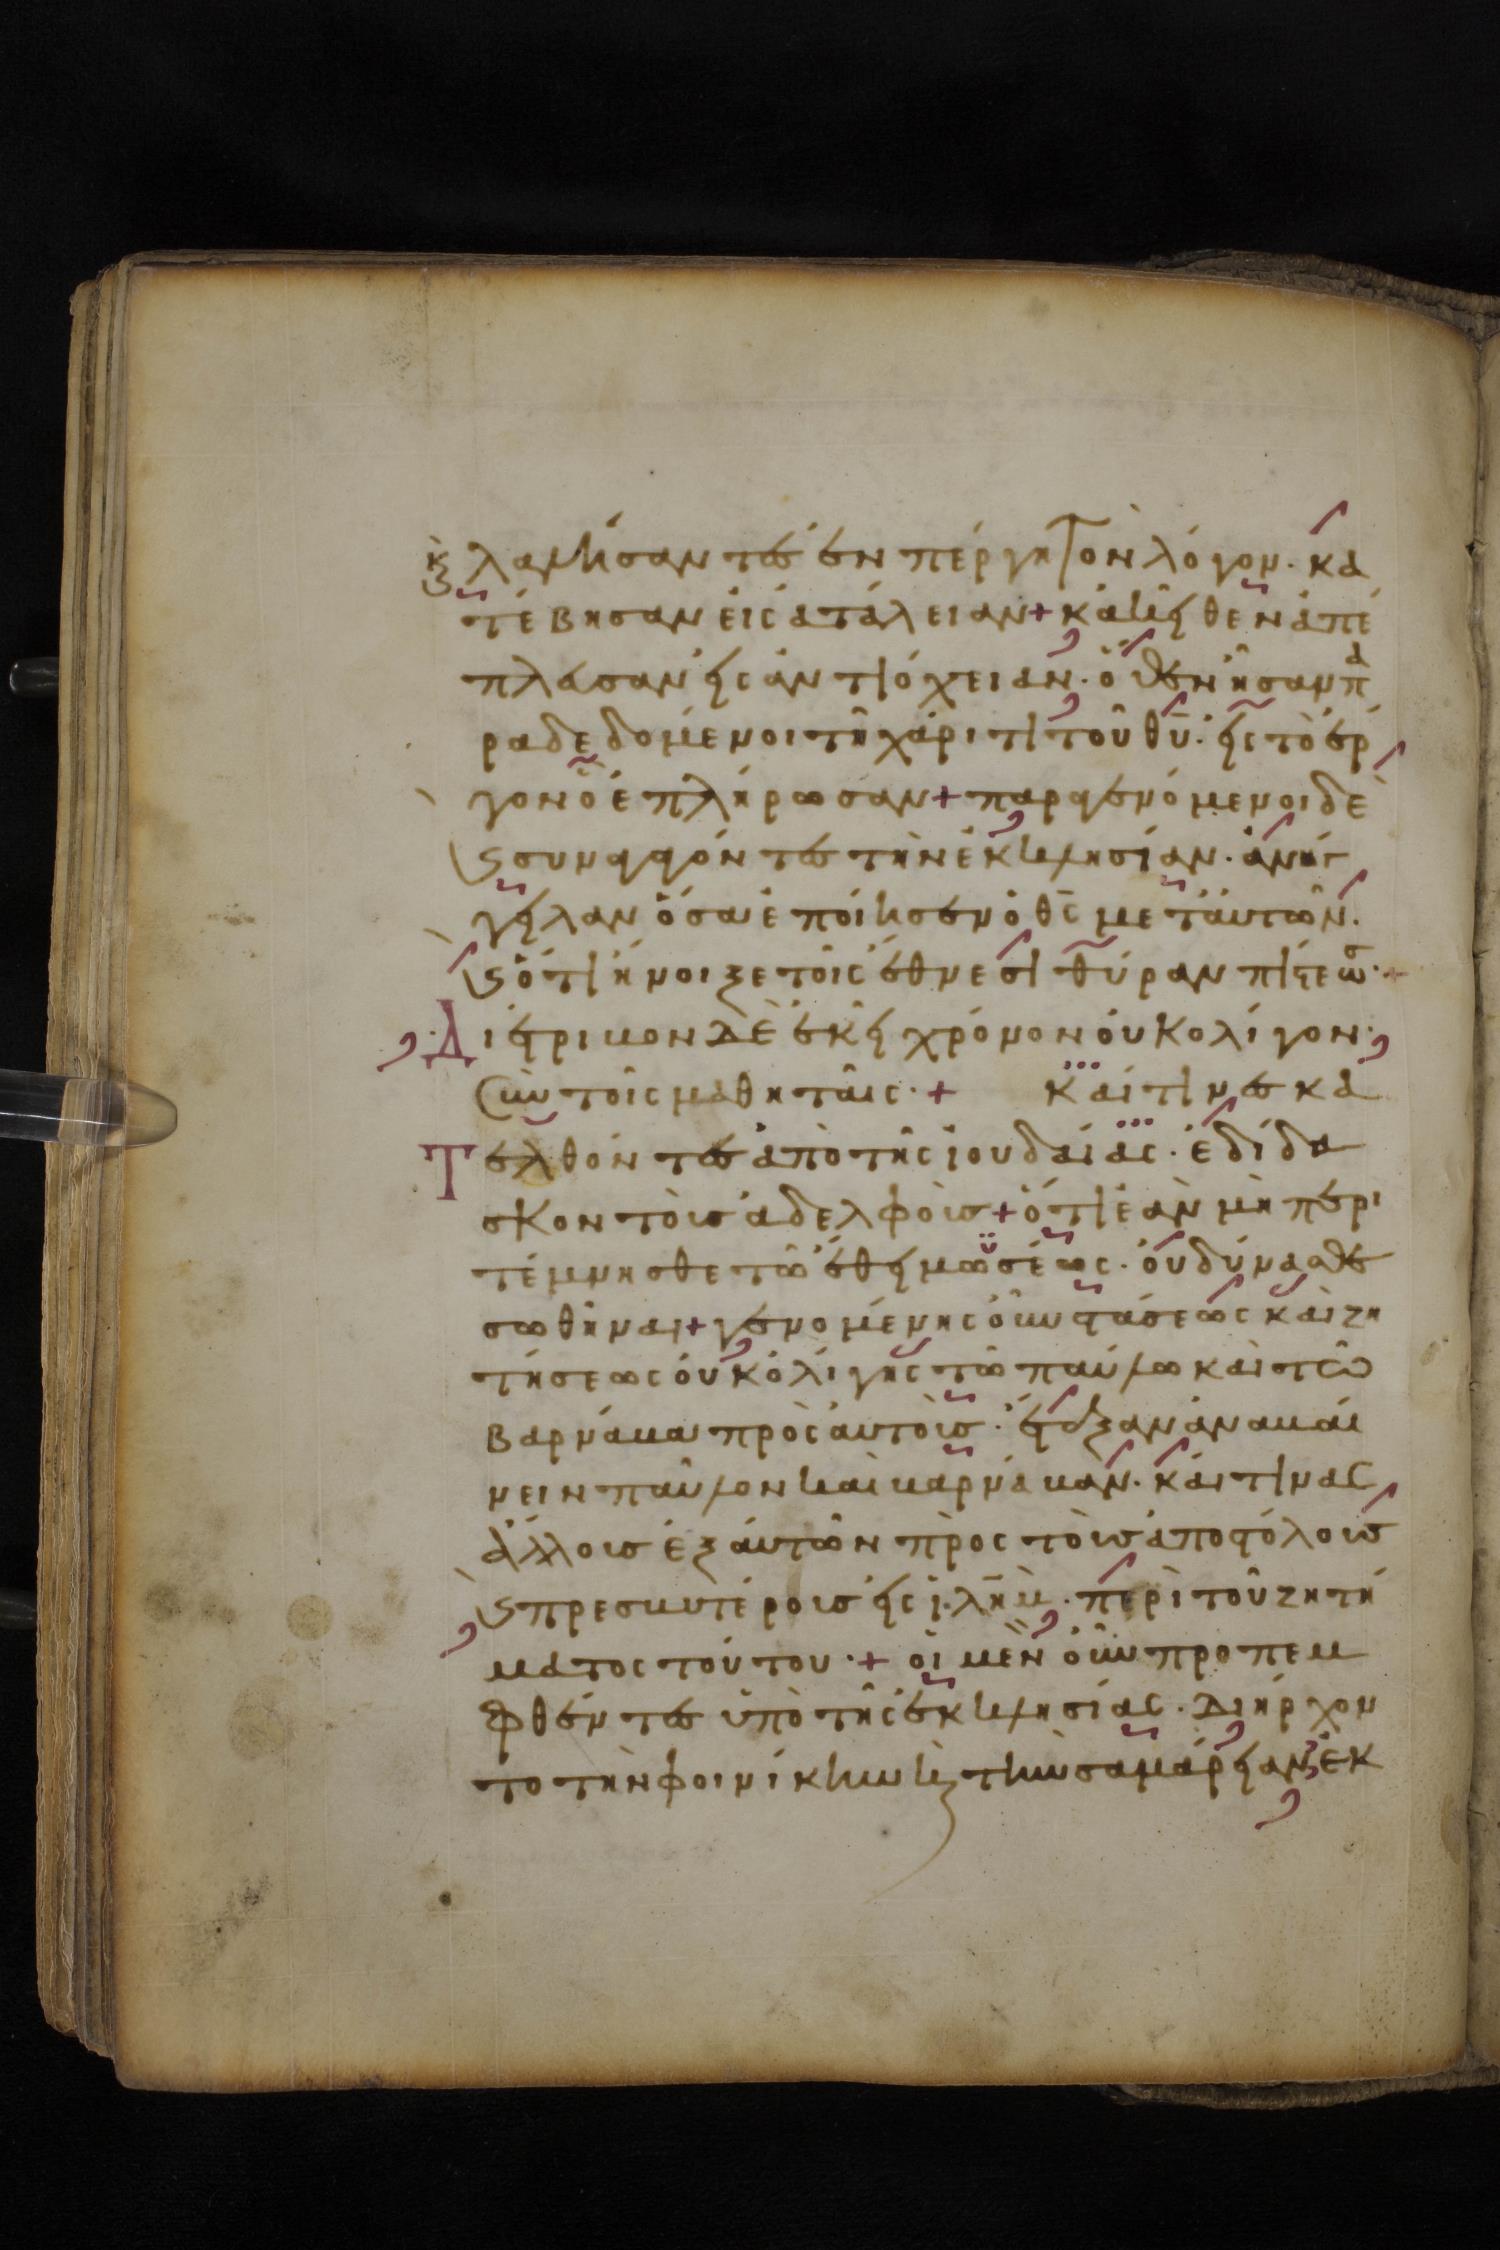 κ λαλήσαντες ἐν πέργη τὸν λόγον· κα
τέβησαν εἰς ἀτάλειαν + κἀκεῖθεν ἀπέ
πλευσαν εἰς ἀντιόχειαν· ὅθεν ἦσαν πα
ραδεδομένοι τῆ χάριτι τοῦ θῦ· εἰς τὸ ἔρ
γον ὃ ἐπλήρωσαν + παραγενόμενοι δὲ
ϗ συναγαγόντες τὴν ἐκκλησίαν· ἀνήγ
γειλαν ὅσα ἐποίησεν ὁ θς μετ' αὐτῶν·
ϗ ὅτι ἤνοιξε τοῖς ἔθνεσι θύραν πίστεως· +
Διέτριβον δὲ ἐκεῖ χρόνον οὐκ ὀλίγον·
σὺν τοῖς μαθηταῖς· + Καί τινες κα
Τ ελθόντες ἀπὸ τῆς ἰουδαίας· ἐδίδα
σκον τοὺς ἀδελφοὺς + ὅτι ἐὰν μὴ περι
τέμνησθε τῶ ἔθει μωϋσέως· οὐ δύνασθε
σωθῆναι + γενομένης οὖν στάσεως καὶ ζη
τήσεως οὐκ ὀλίγης τῶ παύλω καὶ τῶ
βαρνάβα πρὸς αὐτοὺς· ἔταξαν ἀναβαί
νειν παῦλον καὶ βαρνάβαν· καί τινας
ἄλλους ἐξ αὐτῶν πρὸς τοὺς ἀποστόλους
ϗ πρεσβυτέρους εἰς ἱλημ· περὶ τοῦ ζητή
ματος τούτου· + οἱ μὲν οὖν προπεμ
φθέντες ὑπὸ τῆς ἐκκλησίας· διήρχον
το τὴν φοινίκην ϗ τὴν σαμάρειαν ἐκ